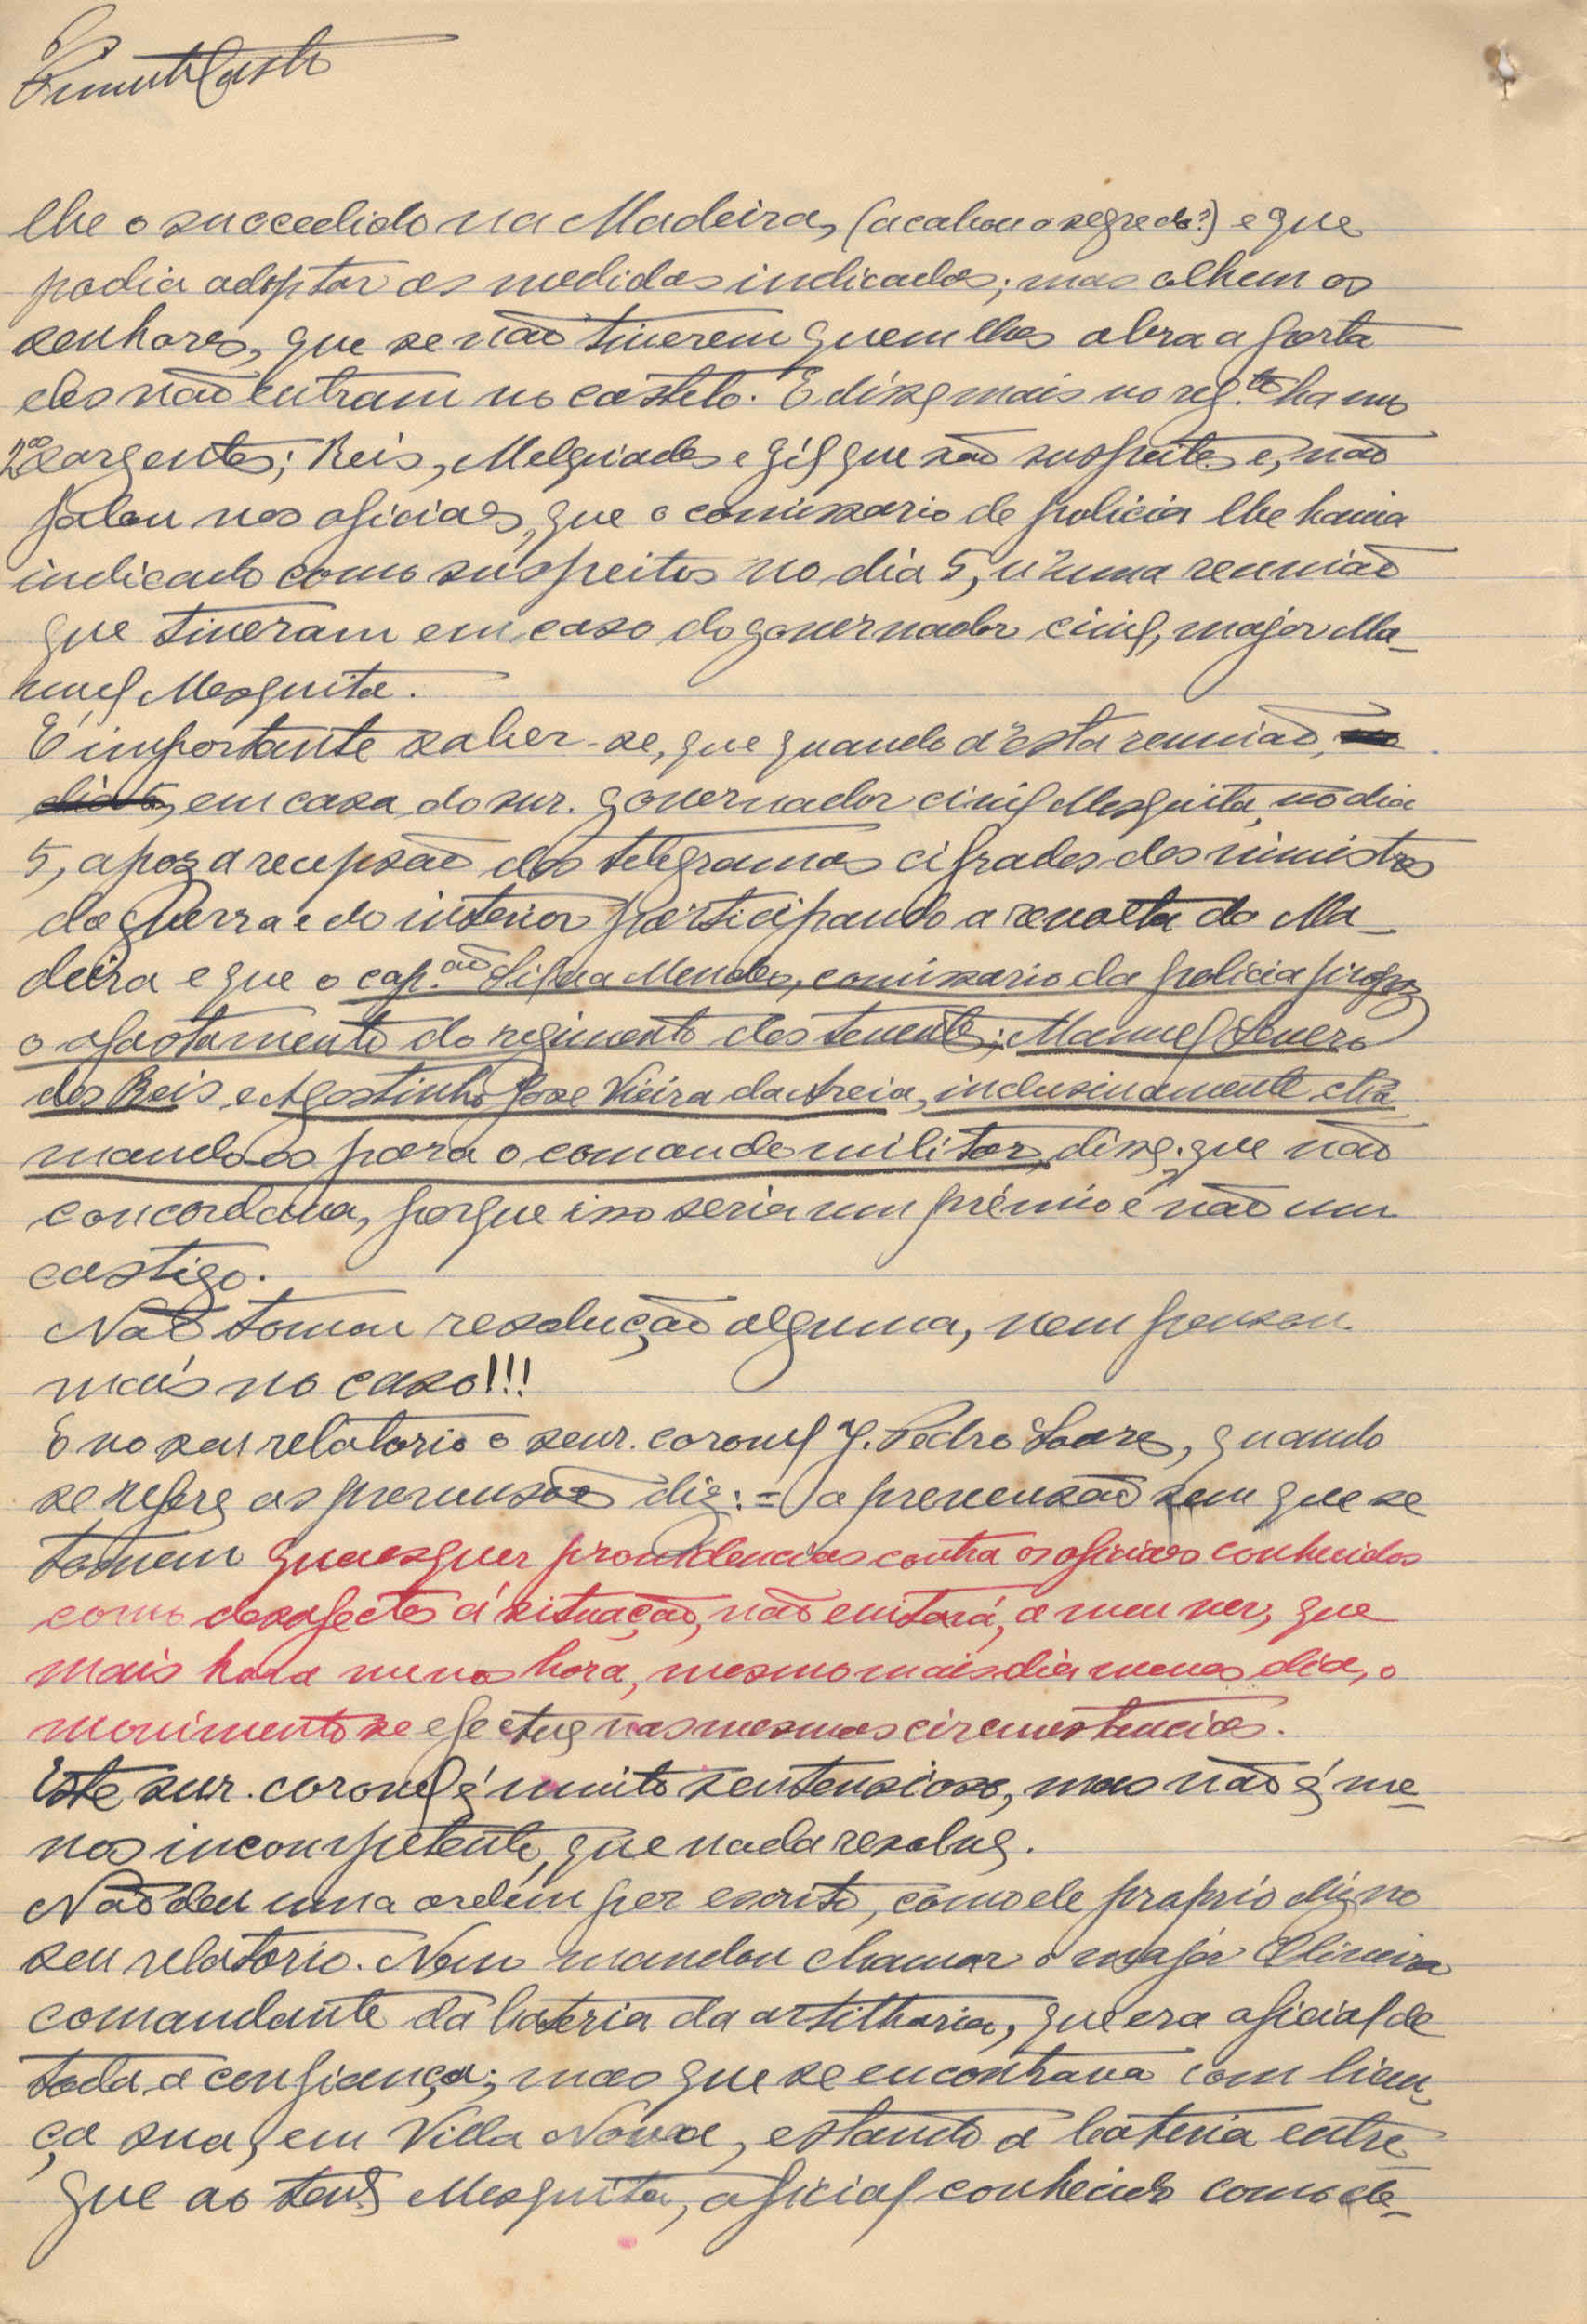 lhe o succedido na Madeira, (acabou o segredo?) e que
podia adoptar as medidas indicadas; mas olhem os
senhores, que se não tiverem quem lhes abra a porta
eles não entram no castelo. E disse mais no reg.to ha uns
2os sargentos; Reis, Melquiades e Gil que são suspeitos e, não
falou nos oficiaes, que o comissario de policia lhe havia
indicado como suspeitos no dia 5, n'uma reunião
que tiveram em casa do governador civil, major Ma-
nuel Mesquita.
E' importante saber-se, que quando d'esta reunião,
dia 5, em casa do snr. governador civil Mesquita, no dia
5, apoz a recepsão dos telegramas cifrados dos ministros
da guerra e do interior participando a revolta da Ma-
deira e que o cap.ão Silva Mendes, comissario da policia propoz
o afastamento do regimento dos tenentes; Manuel Severo
dos Reis e Agostinho José Vieira da Areia, inclusivamente cha-
mando-os para o comando militar, disse: que não
concordava, porque isso seria um prémio e não um
castigo.
Não tomou resolução alguma, nem pensou
mais no caso!!!
E no seu relatorio o senr. coronel J. Pedro Soares, quando
se refere as prevensões diz: = a prevensão sem que se
tomem quaesquer providencias contra os oficiaes conhecidos
como desafectos á situação, não evitará, a meu ver, que
mais hora menos hora, mesmo mais dia menos dia, o
movimento se efectue nas mesmas circumstancias.
Este snr. coronel é muito sentensioso, mas não é me-
nos incompetente, que nada resolve.
Não deu uma ordem por escrito, como ele proprio diz no
seu relatorio. Nem mandou chamar o major Oliveira
comandante da bateria da artilharia, que era oficial de
toda a confiança; mas que se encontrava com licen-
ça sua, em Villa Nova, estando a bateria entre
gue ao tent.e Mesquita, oficial conhecido como de-